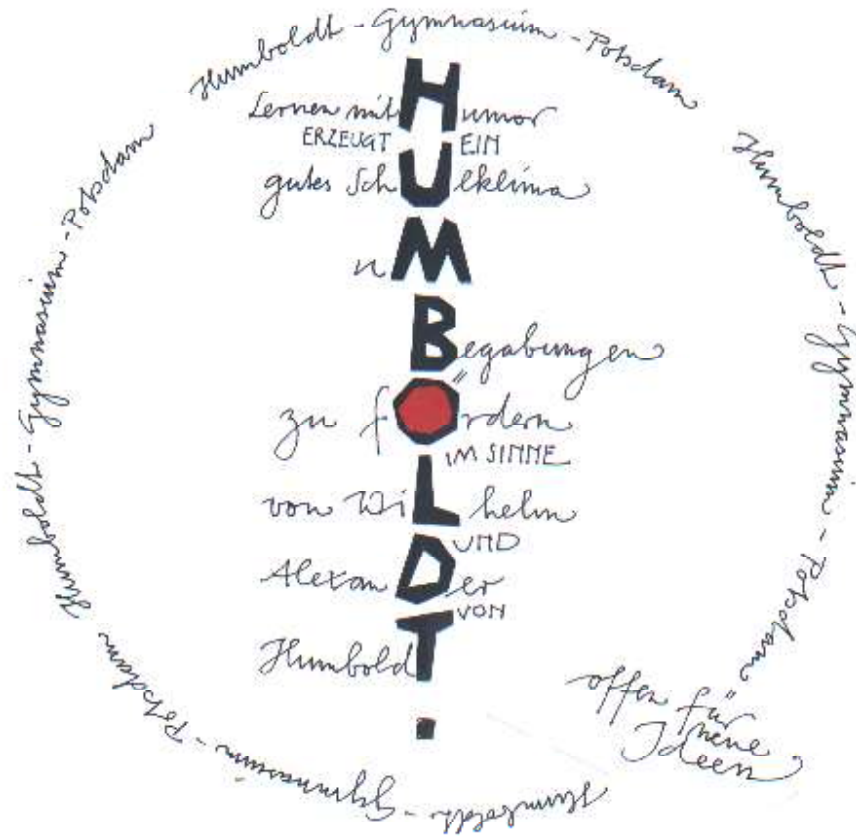 Humboldt - Gymnasium - Potsdam
Humboldt - Gymnasium - Potsdam
Humboldt - Gymnasium - Potsdam
Humboldt - Gymnasium - Potsdam
Lernen mit Humor
ERZEUGT EIN
gutes Schulklima
um
Begabungen
zu fördern
IM SINNE
von Wilhelm
UND
Alexander
VON
Humboldt.
offen für
neue
Ideen